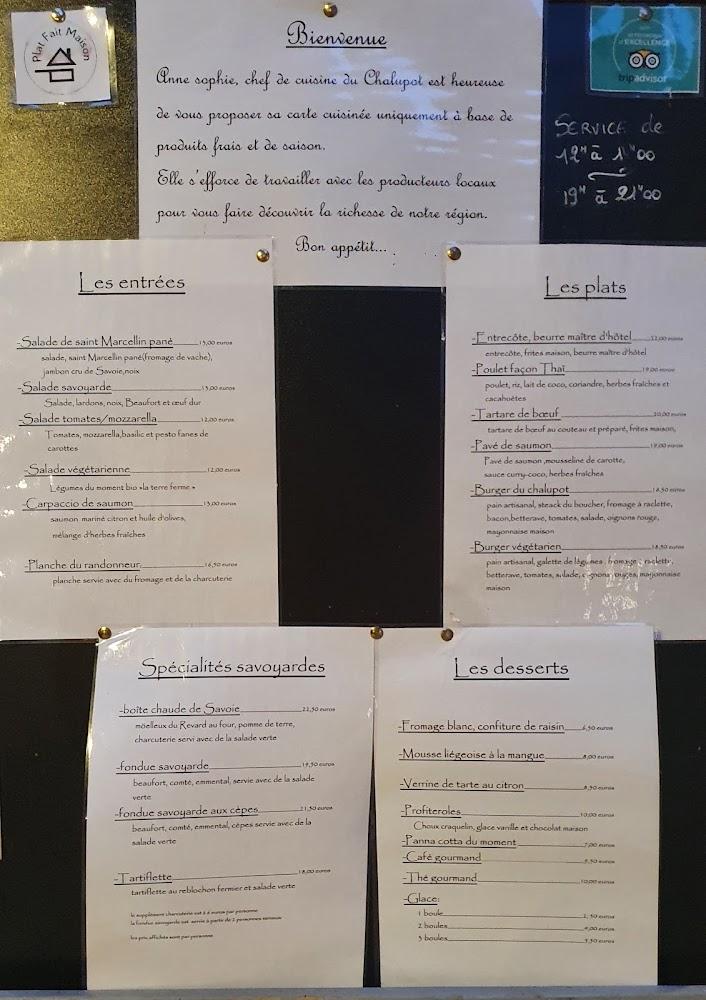 Plat Fait Maison
Bienvenue
Anne sophie, chef de cuisine du Chalupot est heureuse
de vous proposer sa carte cuisinée uniquement à base de
produits frais et de saison.
Elle s'efforce de travailler avec les producteurs locaux
pour vous faire découvrir la richesse de notre région.
Bon appétit...
EXCELLENCE
tripadvisor
SERVICE de
12H à
19H à 21H00
Les entrées
-Salade de saint Marcellin pané 13,00 euros
salade, saint Marcellin pané(fromage de vache),
jambon cru de Savoie,noix
-Salade savoyarde 13,00 euros
Salade, lardons, noix, Beaufort et œuf dur
-Salade tomates/mozzarella 12,00 euros
Tomates, mozzarella,basilic et pesto fanes de
carottes
-Salade végétarienne 12,00 euros
Légumes du moment bio «la terre ferme »
-Carpaccio de saumon 13,00 euros
saumon mariné citron et huile d'olives,
mélange d'herbes fraîches
-Planche du randonneur 16,50 euros
planche servie avec du fromage et de la charcuterie
Les plats
-Entrecôte, beurre maître d'hôtel 22,00 euros
entrecôte, frites maison, beurre maître d'hôtel
-Poulet façon Thaï 19,00 euros
poulet, riz, lait de coco, coriandre, herbes fraîches et
cacahuètes
-Tartare de bœuf 20,00 euros
tartare de bœuf au couteau et préparé, frites maison,
-Pavé de saumon 19,00 euros
Pavé de saumon ,mousseline de carotte,
sauce curry-coco, herbes fraîches
-Burger du chalupot 18,50 euros
pain artisanal, steack du boucher, fromage à raclette,
bacon,betterave, tomates, salade, oignons rouge,
mayonnaise maison
-Burger végétarien 18,50 euros
pain artisanal, galette de légumes, fromage à raclette,
betterave, tomates, salade, oignons rouges, mayonnaise
maison
Spécialités savoyardes
-boîte chaude de Savoie 22,50 euros
möelleux du Revard au four, pomme de terre,
charcuterie servi avec de la salade verte
-fondue savoyarde 19,50 euros
beaufort, comté, emmental, servie avec de la salade
verte
-fondue savoyarde aux cèpes 21,50 euros
beaufort, comté, emmental, cèpes servie avec de la
salade verte
-Tartiflette 18,00 euros
tartiflette au reblochon fermier et salade verte
le supplément charcuterie est à 6 euros par personne
la fondue savoyarde est servie à partir de 2 personnes minimum
les prix affichés sont par personne
Les desserts
-Fromage blanc, confiture de raisin 6,50 euros
-Mousse liégeoise à la mangue 8,00 euros
-Verrine de tarte au citron 8,50 euros
-Profiteroles 10,00 euros
Choux craquelin, glace vanille et chocolat maison
-Panna cotta du moment 7,00 euros
-Café gourmand 9,50 euros
-Thé gourmand 10,00 euros
-Glace:
1 boule 2,50 euros
2 boules 4,00 euros
3 boules 5,50 euros